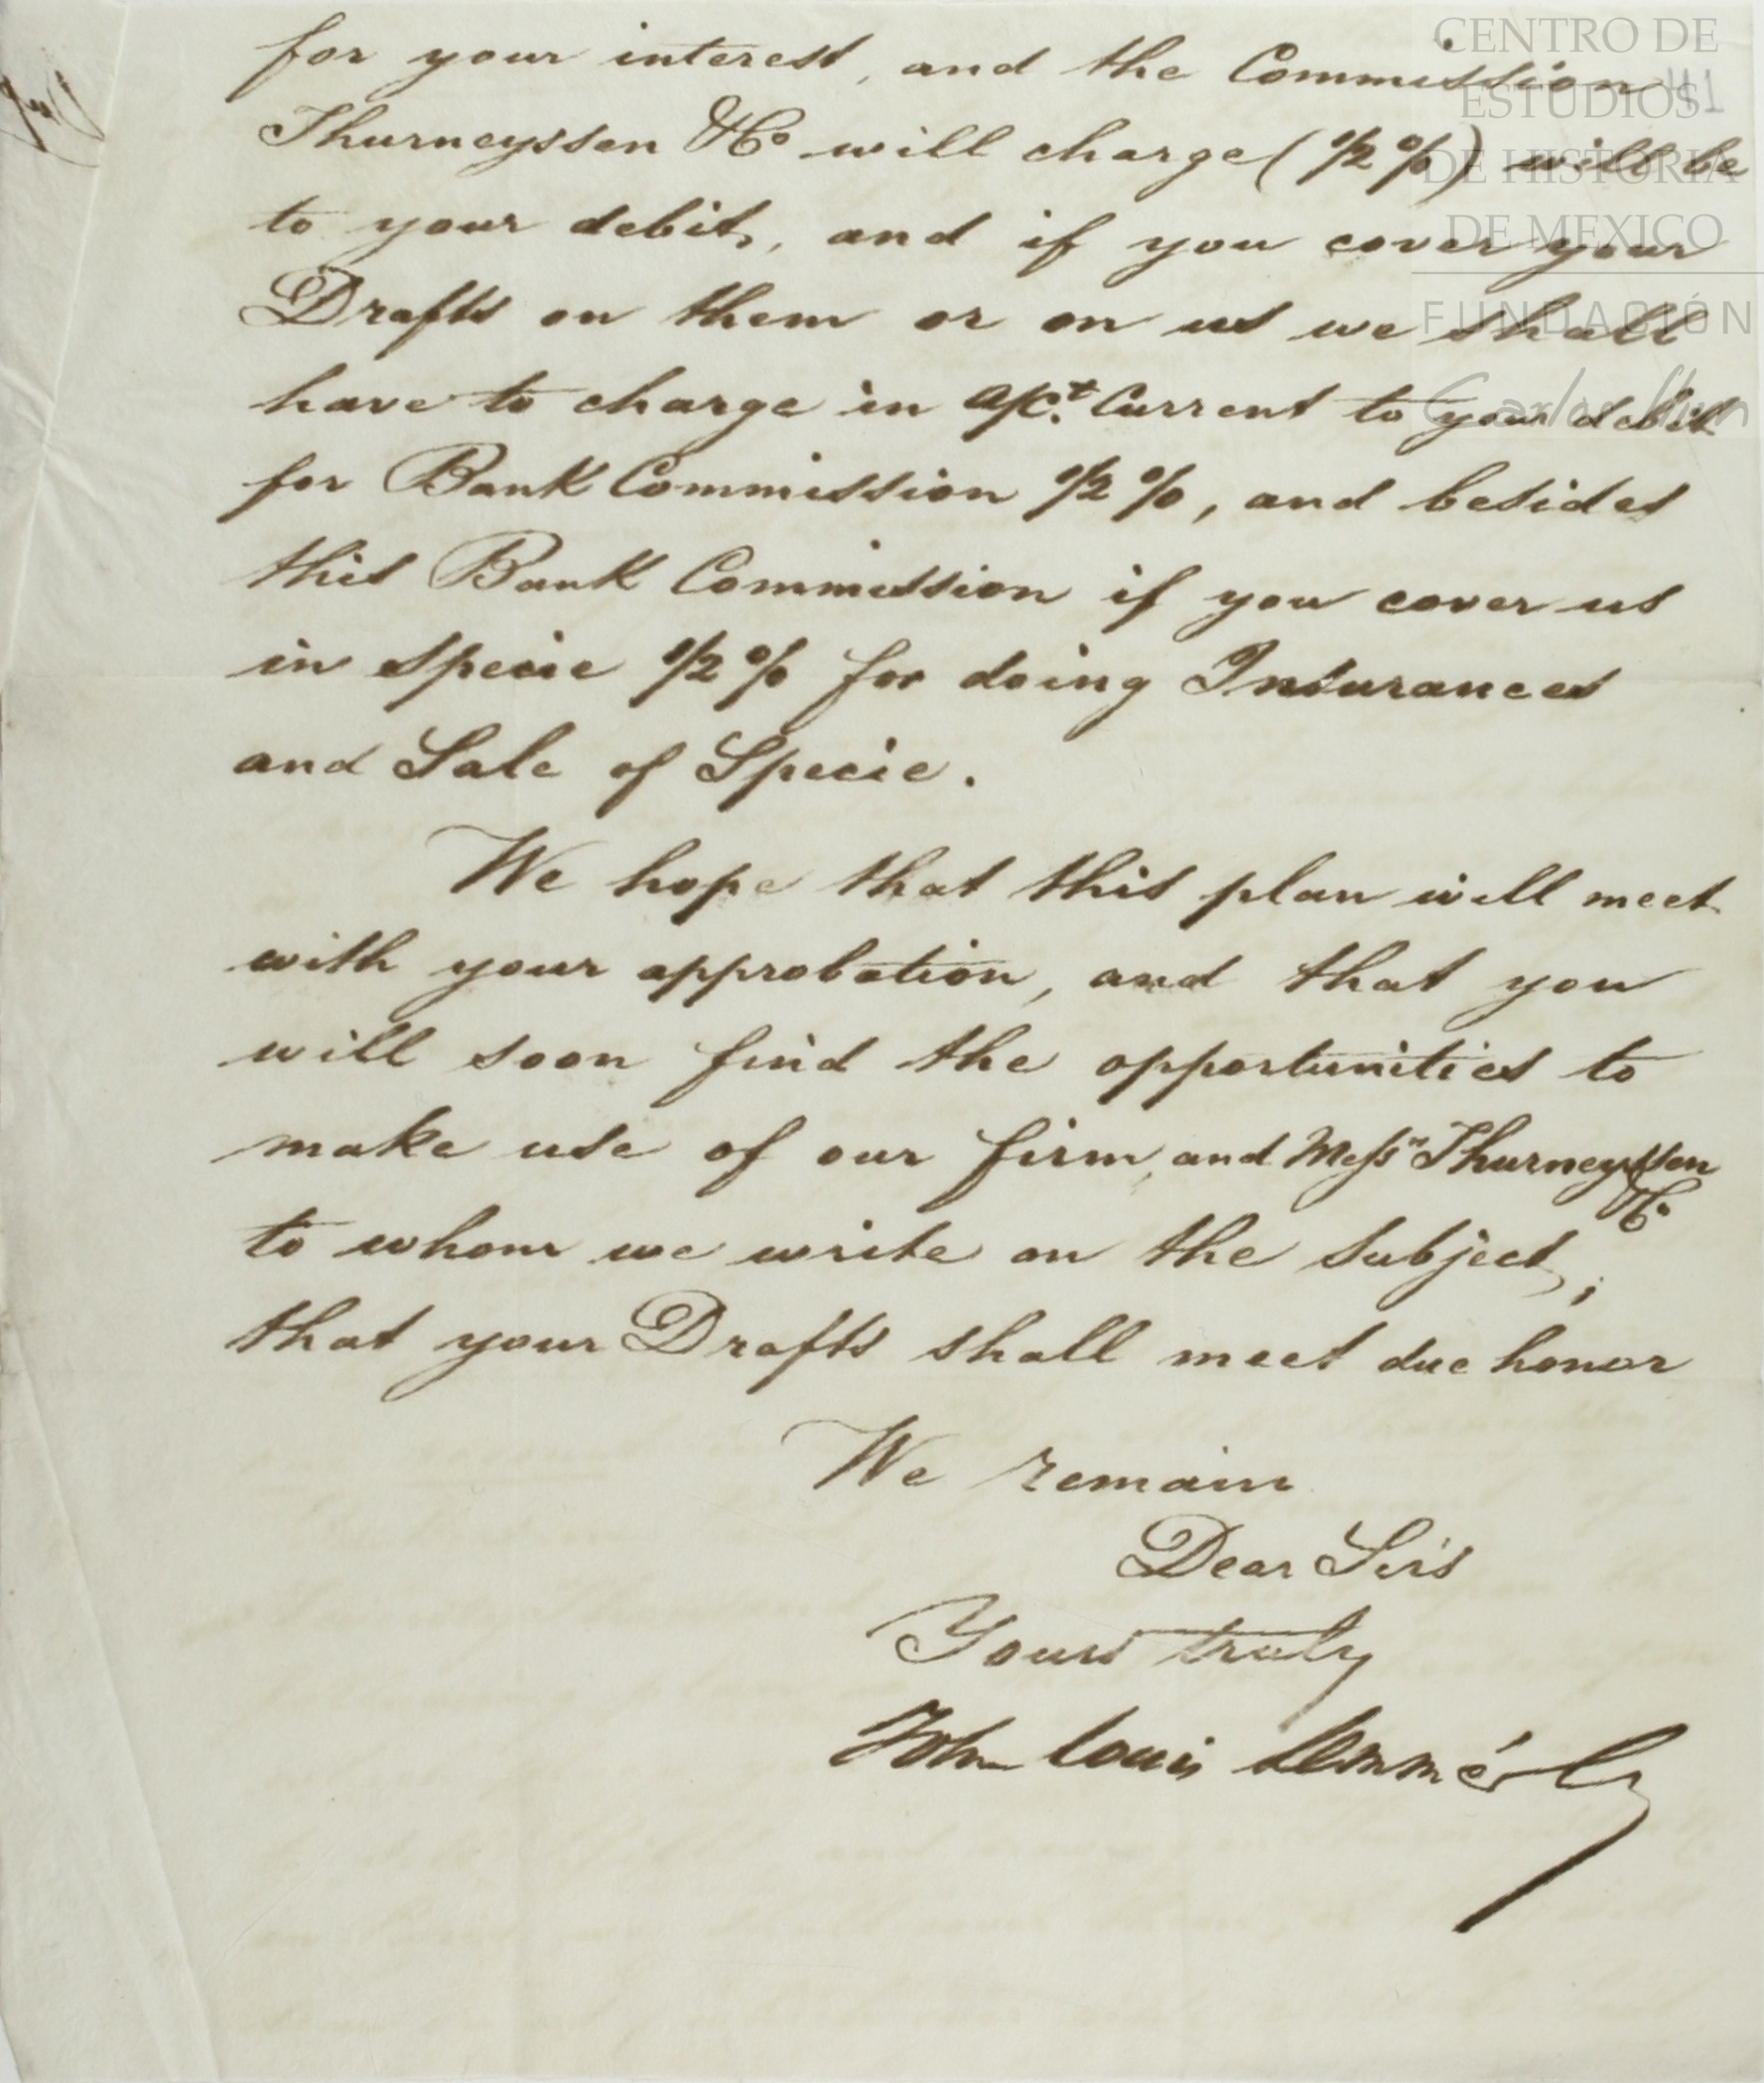 for your interest, and the Commission
Thurneyssen &Co will charge (1/2 %) will be
to your debit, and if you cover your
Drafts on them or on us we shall
have to charge in a/ct. Current to your debit
for Bank Commission 1/2 %, and besides
this Bank Commission if you cover us
in specie 1/2 % for doing Insurances
and Sale of Specie.
We hope that this plan will meet
with your approbation, and that you
will soon find the opportunities to
make use of our firm, and Messrs Thurneyssen
&Co
to whom we write on the subject;
that your Drafts shall meet due honor
We remain
Dear Sirs
Yours truly
John Louis Lemmé &Co
CENTRO DE
ESTUDIOS
DE HISTORIA
DE MEXICO
FUNDACIÓN
Carlos Slim
41